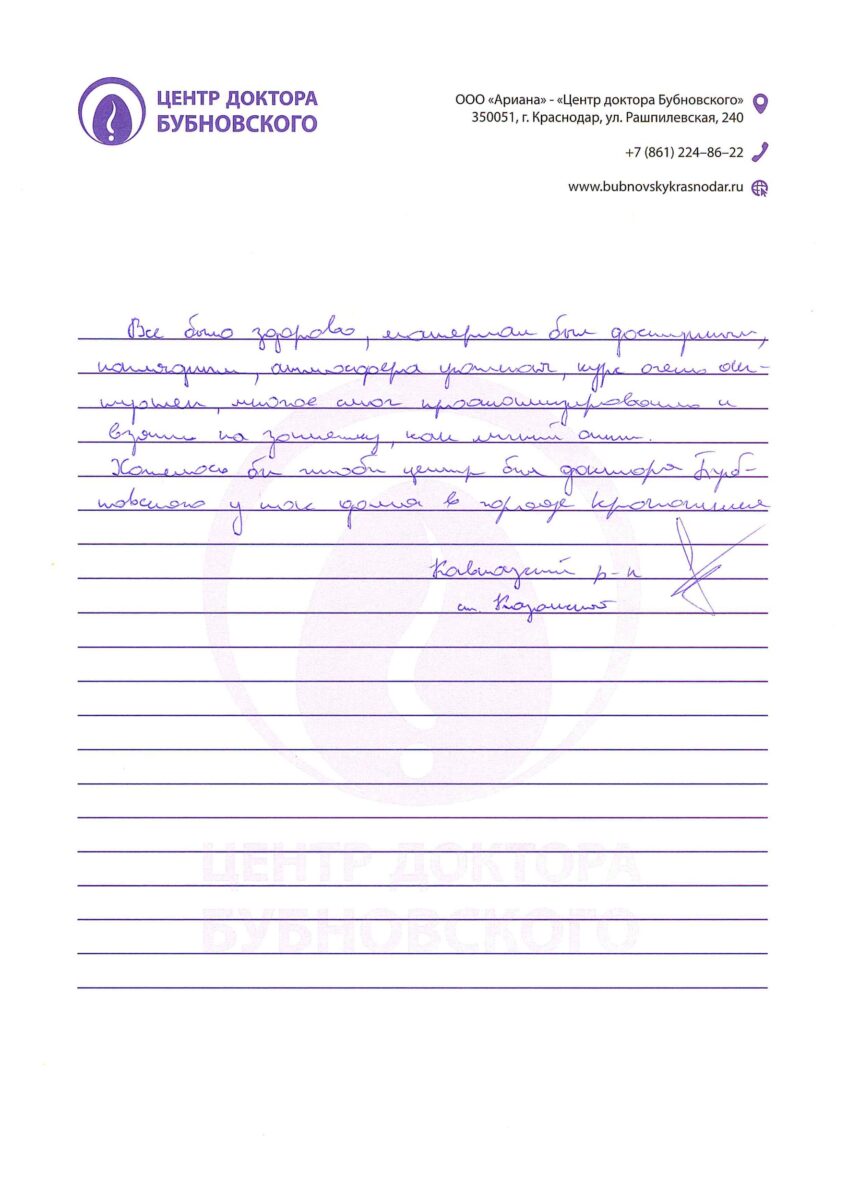 ЦЕНТР ДОКТОРА
БУБНОВСКОГО
ООО «Ариана» - «Центр доктора Бубновского»
350051, г. Краснодар, ул. Рашпилевская, 240
+7 (861) 224–86–22
www.bubnovskykrasnodar.ru
Все было здорово, материал был доступным,
наглядным, атмосфера уютная, курс очень
многое смог проанализировать и
взять на заметку, как личный опыт.
Хотелось бы чтобы центр был доктора Буб-
новского у нас дома в городе Кропоткине
Кавказский р-н
ст. Казанской
ЦЕНТР ДОКТОРА
БУБНОВСКОГО